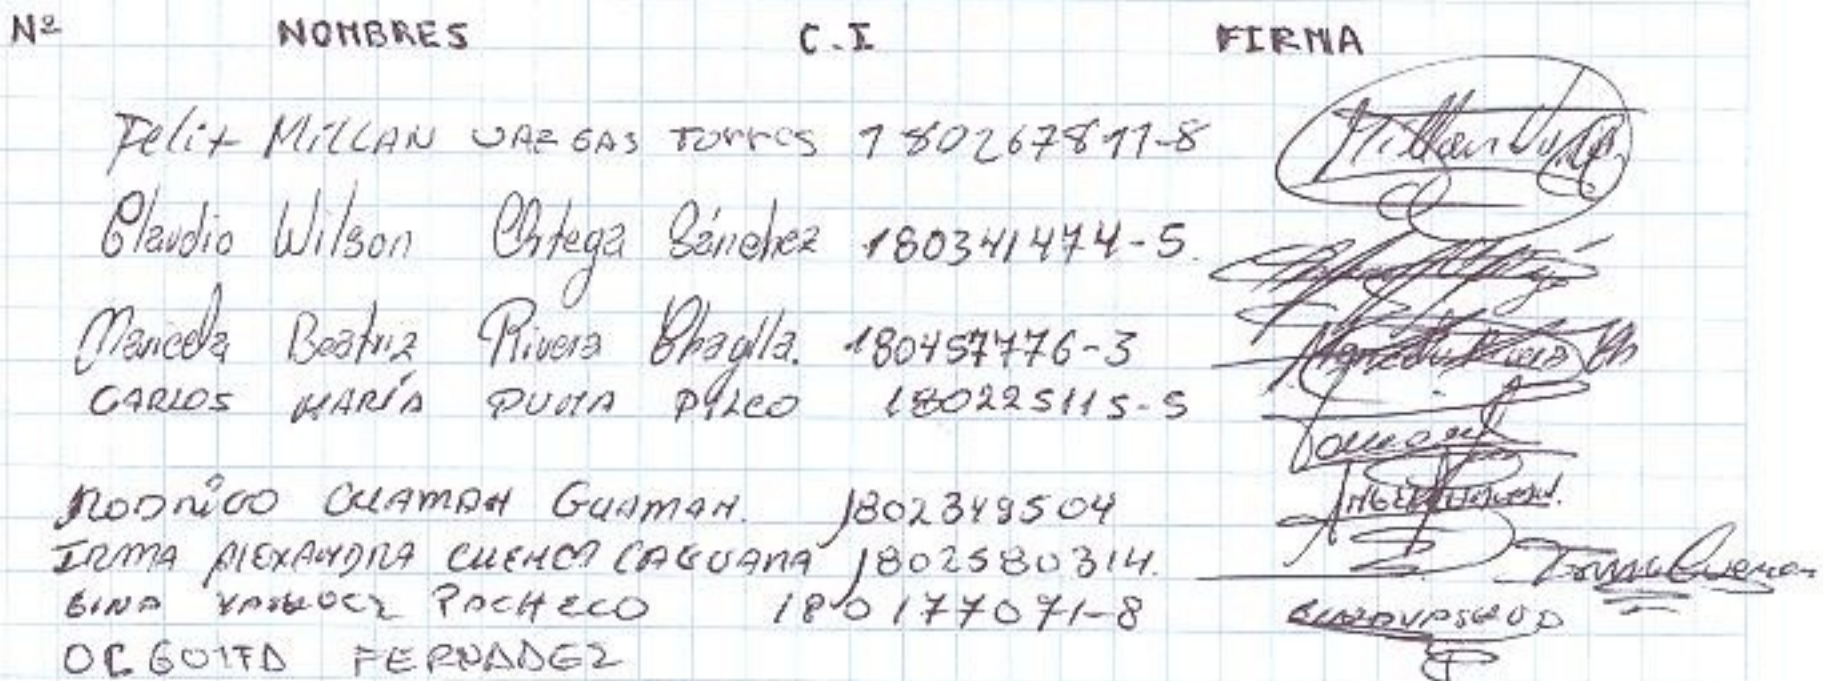 Nº NOMBRES C.I FIRMA
Felix MILLAN VARGAS TORRES 180267811-8 Millan
Claudio Wilson Ortega Sánchez 180341474-5.
Maricela Beatriz Rivera Chaglla. 180457776-3
CARLOS MARÍA PUMA PILCO 180225115-5
RODRIGO GUAMAN GUAMAN. 1802349504
IRMA ALEXANDRA CUENCA CAGUANA 1802580314. Irma Cuenca
GINA PACHECO 180177071-8
FERNADEZ